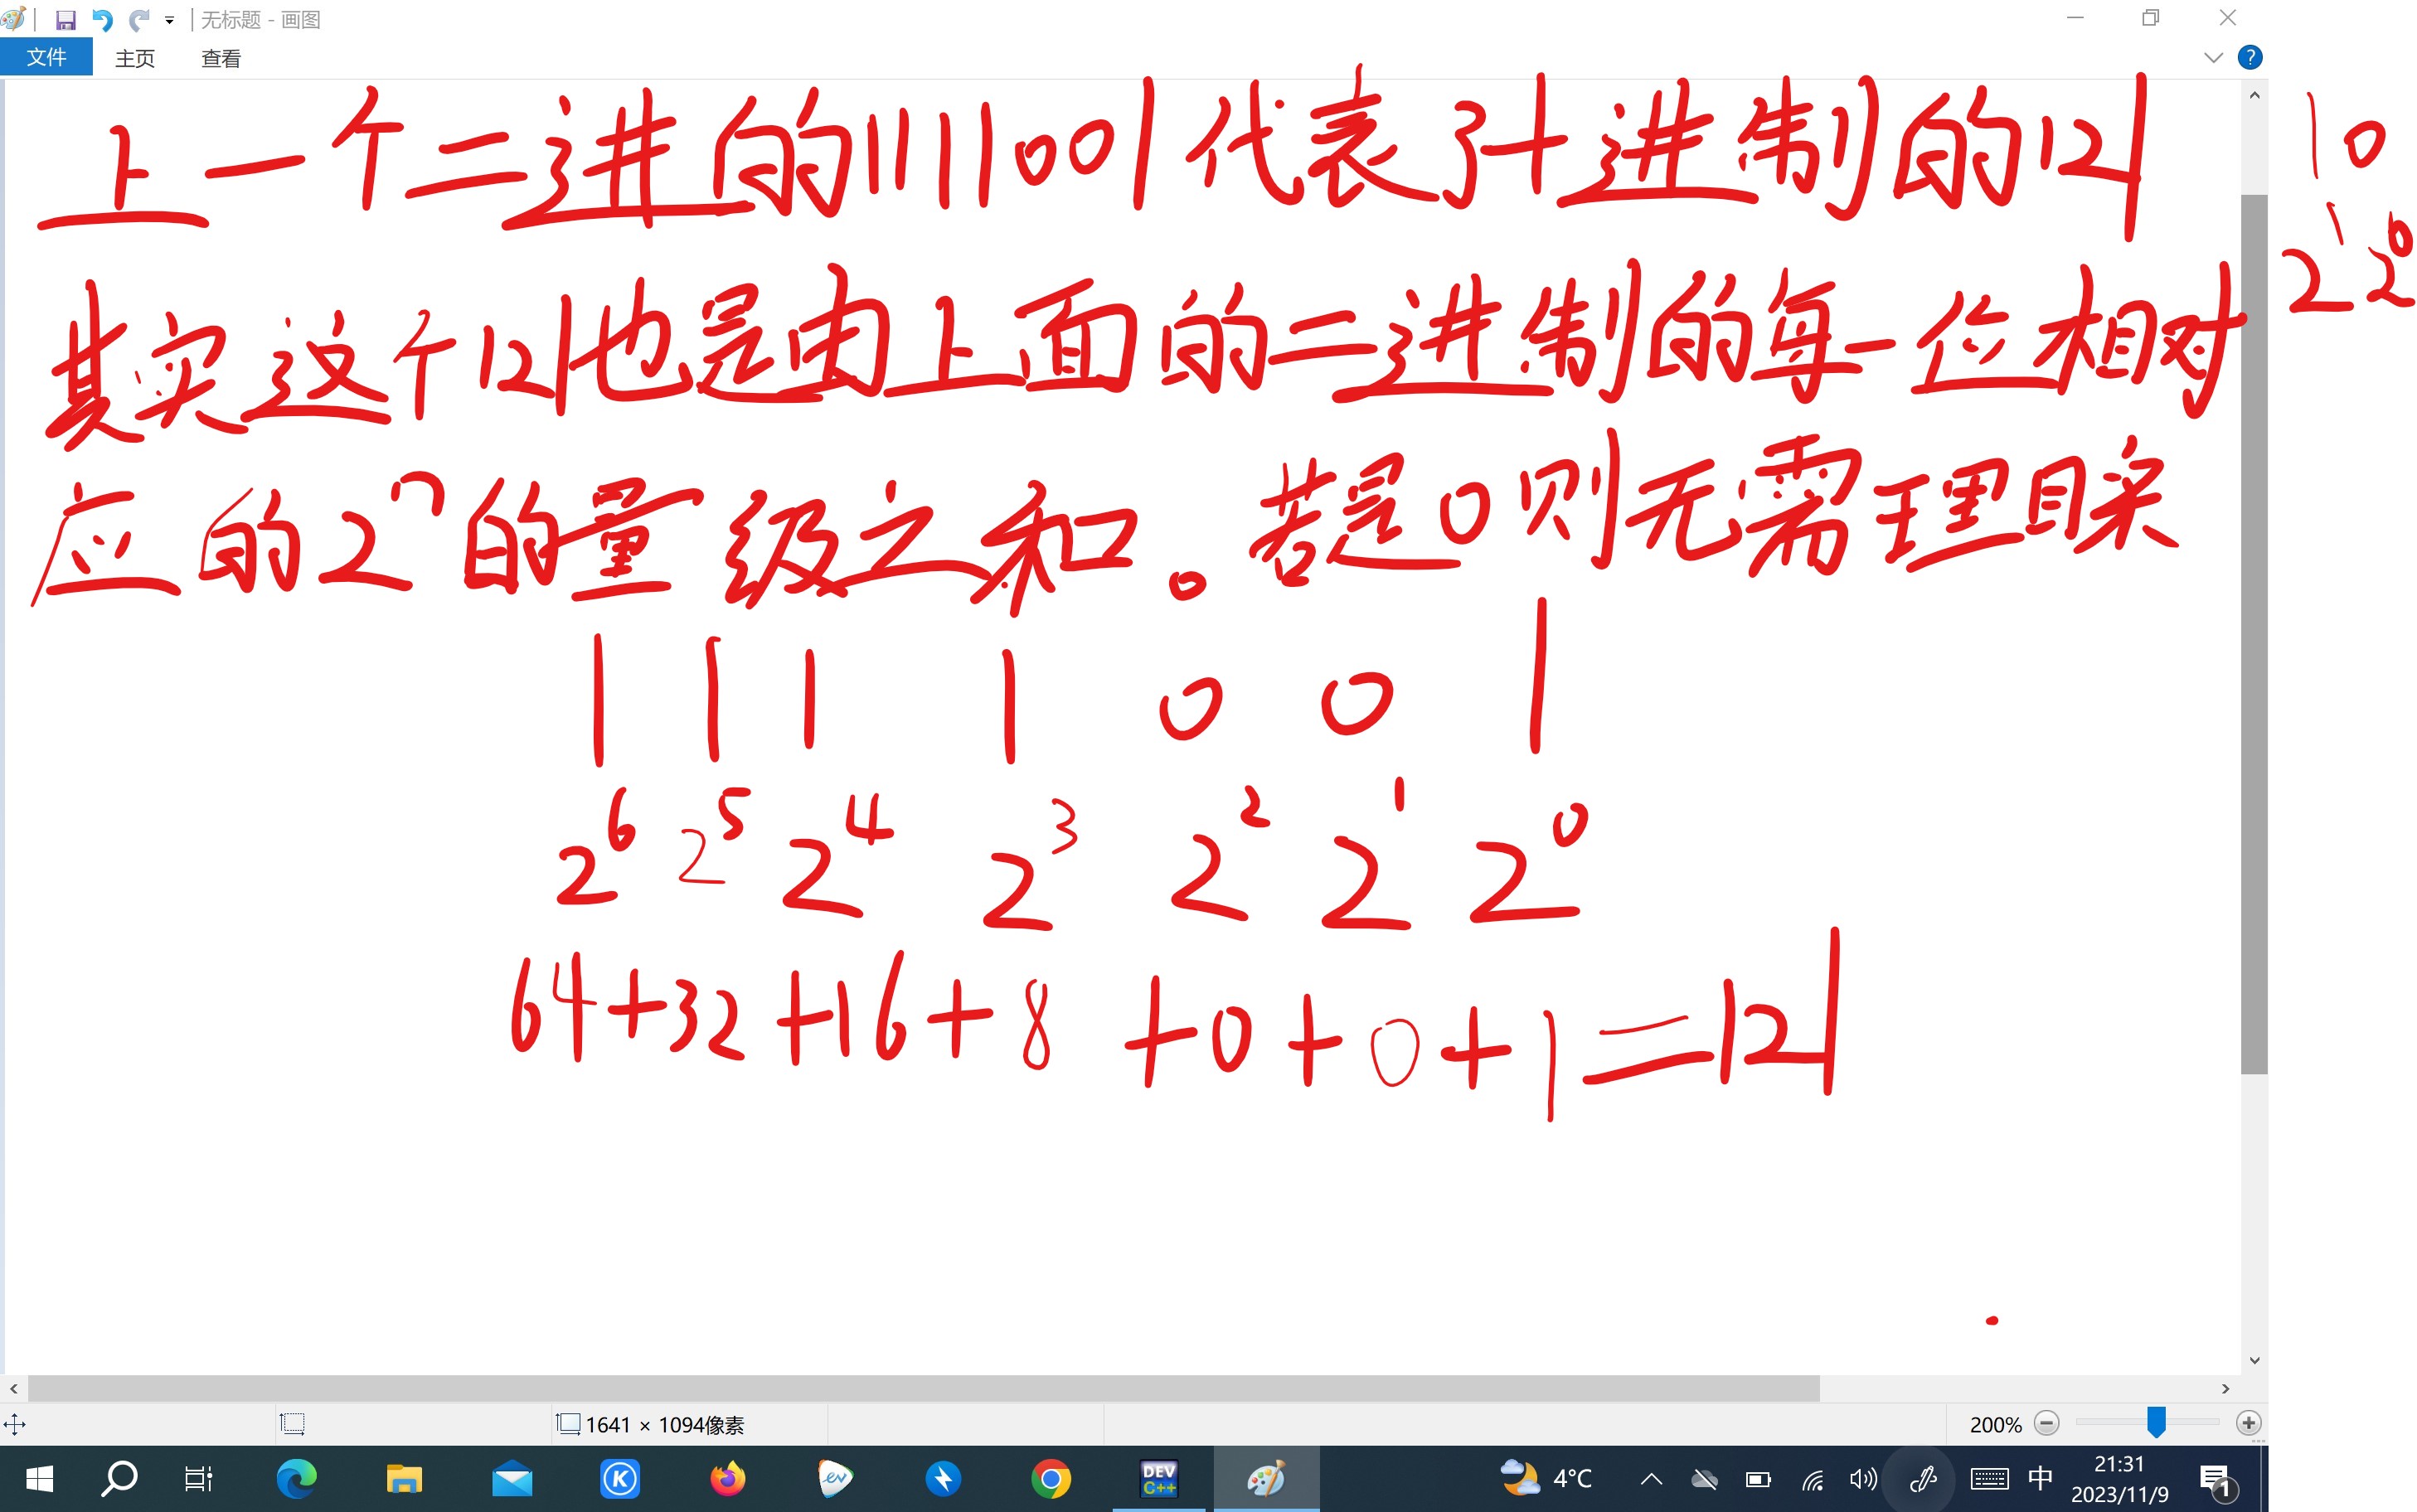 无标题 - 画图
文件 主页 查看
上一个二进的1111001代表了十进制的121
10
2¹ 2⁰
其实这个121也是由上面的二进制的每一位相对
应的2ⁿ的量级之和。若是0则无需理睬
1 1 1 1 0 0 1
2⁶ 2⁵ 2⁴ 2³ 2² 2¹ 2⁰
64+32+16+8+0+0+1=121
1641 × 1094像素
200%
DEV C++
4°C
中
21:31
2023/11/9
1